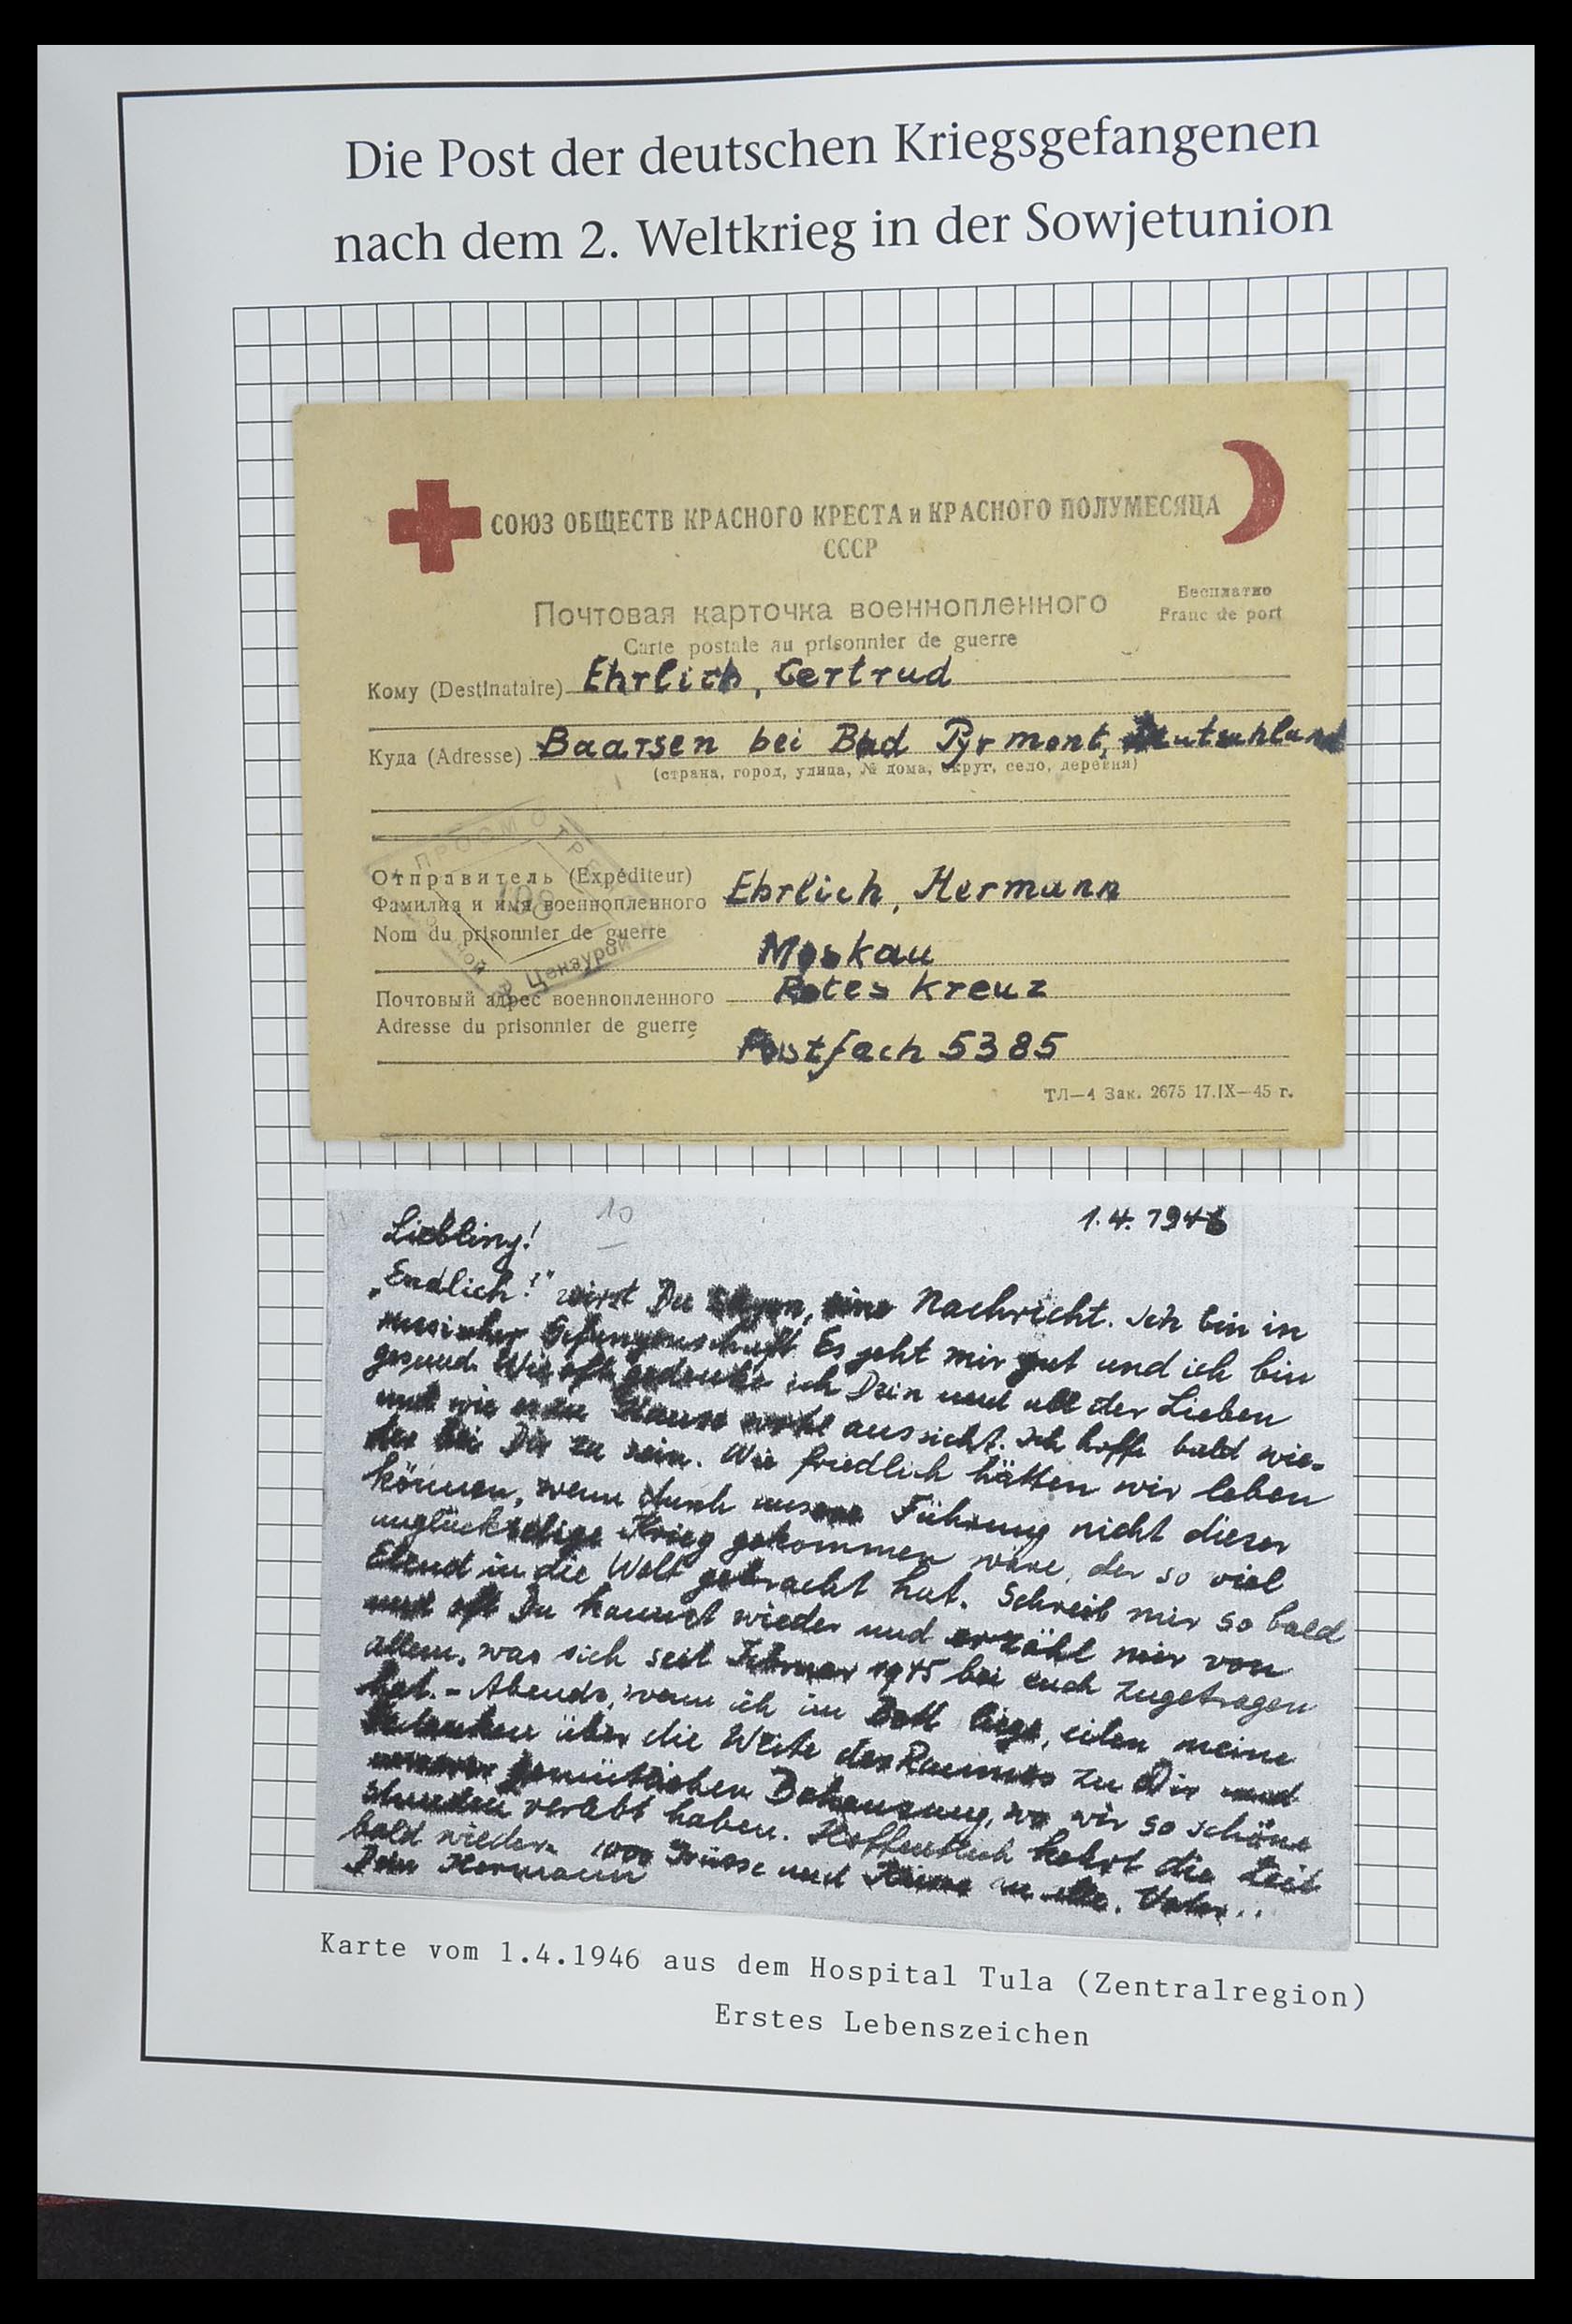 Die Post der deutschen Kriegsgefangenen
nach dem 2. Weltkrieg in der Sowjetunion
СОЮЗ ОБЩЕСТВ КРАСНОГО КРЕСТА и КРАСНОГО ПОЛУМЕСЯЦА
СССР
Бесплатно
Franc de port
Почтовая карточка военнопленного
Carte postale au prisonnier de guerre
Кому (Destinataire) Ehrlich, Gertrud
Куда (Adresse) Baarsen bei Bad Pyrmont, Deutschland
(страна, город, улица, № дома, округ, село, деревня)
ПРОСМОТРЕНО
108
Цензурой
Отправитель (Expéditeur)
Фамилия и имя военнопленного Ehrlich, Hermann
Nom du prisonnier de guerre
Moskau
Почтовый адрес военнопленного Rotes Kreuz
Adresse du prisonnier de guerre
Postfach 5385
ТЛ—4 Зак. 2675 17.IX—45 г.
10
1.4.1946
Liebling!
„Endlich!" wirst Du sagen, eine Nachricht. Ich bin in
russischer Gefangenschaft. Es geht mir gut und ich bin
gesund. Wie oft gedenke ich Dein und all der Lieben
und wie es zu Hause wohl aussieht. Ich hoffe bald wie-
der bei Dir zu sein. Wie friedlich hätten wir leben
können, wenn durch unsere Führung nicht dieser
unglückselige Krieg gekommen wäre, der so viel
Elend in die Welt gebracht hat. Schreib mir so bald
und oft Du kannst wieder und erzähl mir von
allem, was sich seit Februar 1945 bei euch zugetragen
hat. - Abends, wenn ich im Bett liege, eilen meine
Gedanken über die Weite des Raumes zu Dir und
unserer gemütlichen Behausung, wo wir so schöne
Stunden verlebt haben. Hoffentlich kehrt die Zeit
bald wieder. 1000 Grüsse und Küsse an alle. Vater..
Dein Hermann
Karte vom 1.4.1946 aus dem Hospital Tula (Zentralregion)
Erstes Lebenszeichen